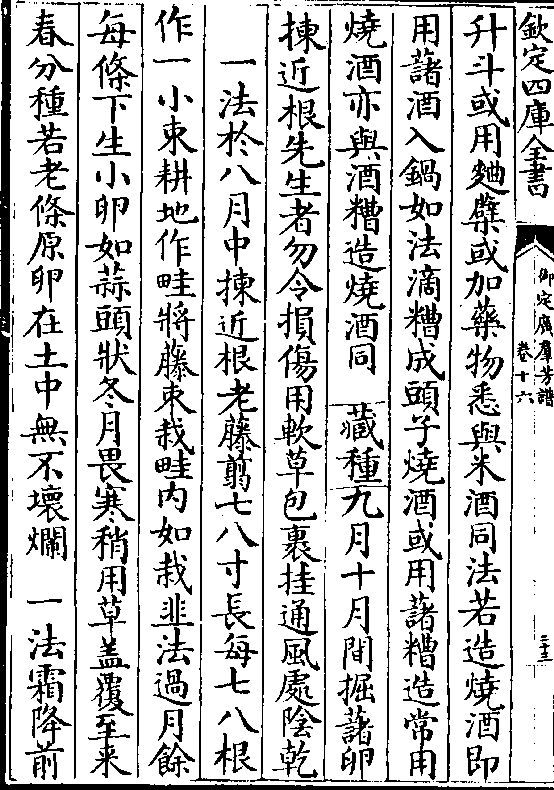 欽定四庫全書
御定廣羣芳譜
卷十六
三十三
升斗或用麯糵或加藥物悉與米酒同法若造燒酒即
用藷酒入鍋如法滴糟成頭子燒酒或用藷糟造常用
燒酒亦與酒糟造燒酒同 藏種九月十月間掘藷卵
揀近根先生者勿令損傷用軟草包裹挂通風處陰乾
一法於八月中揀近根老藤翦七八寸長每七八根
作一小束耕地作畦將藤束栽畦内如栽韭法過月餘
每條下生小卵如蒜頭狀冬月畏寒稍用草盖覆至来
春分種若老條原卵在土中無不壞爛 一法霜降前